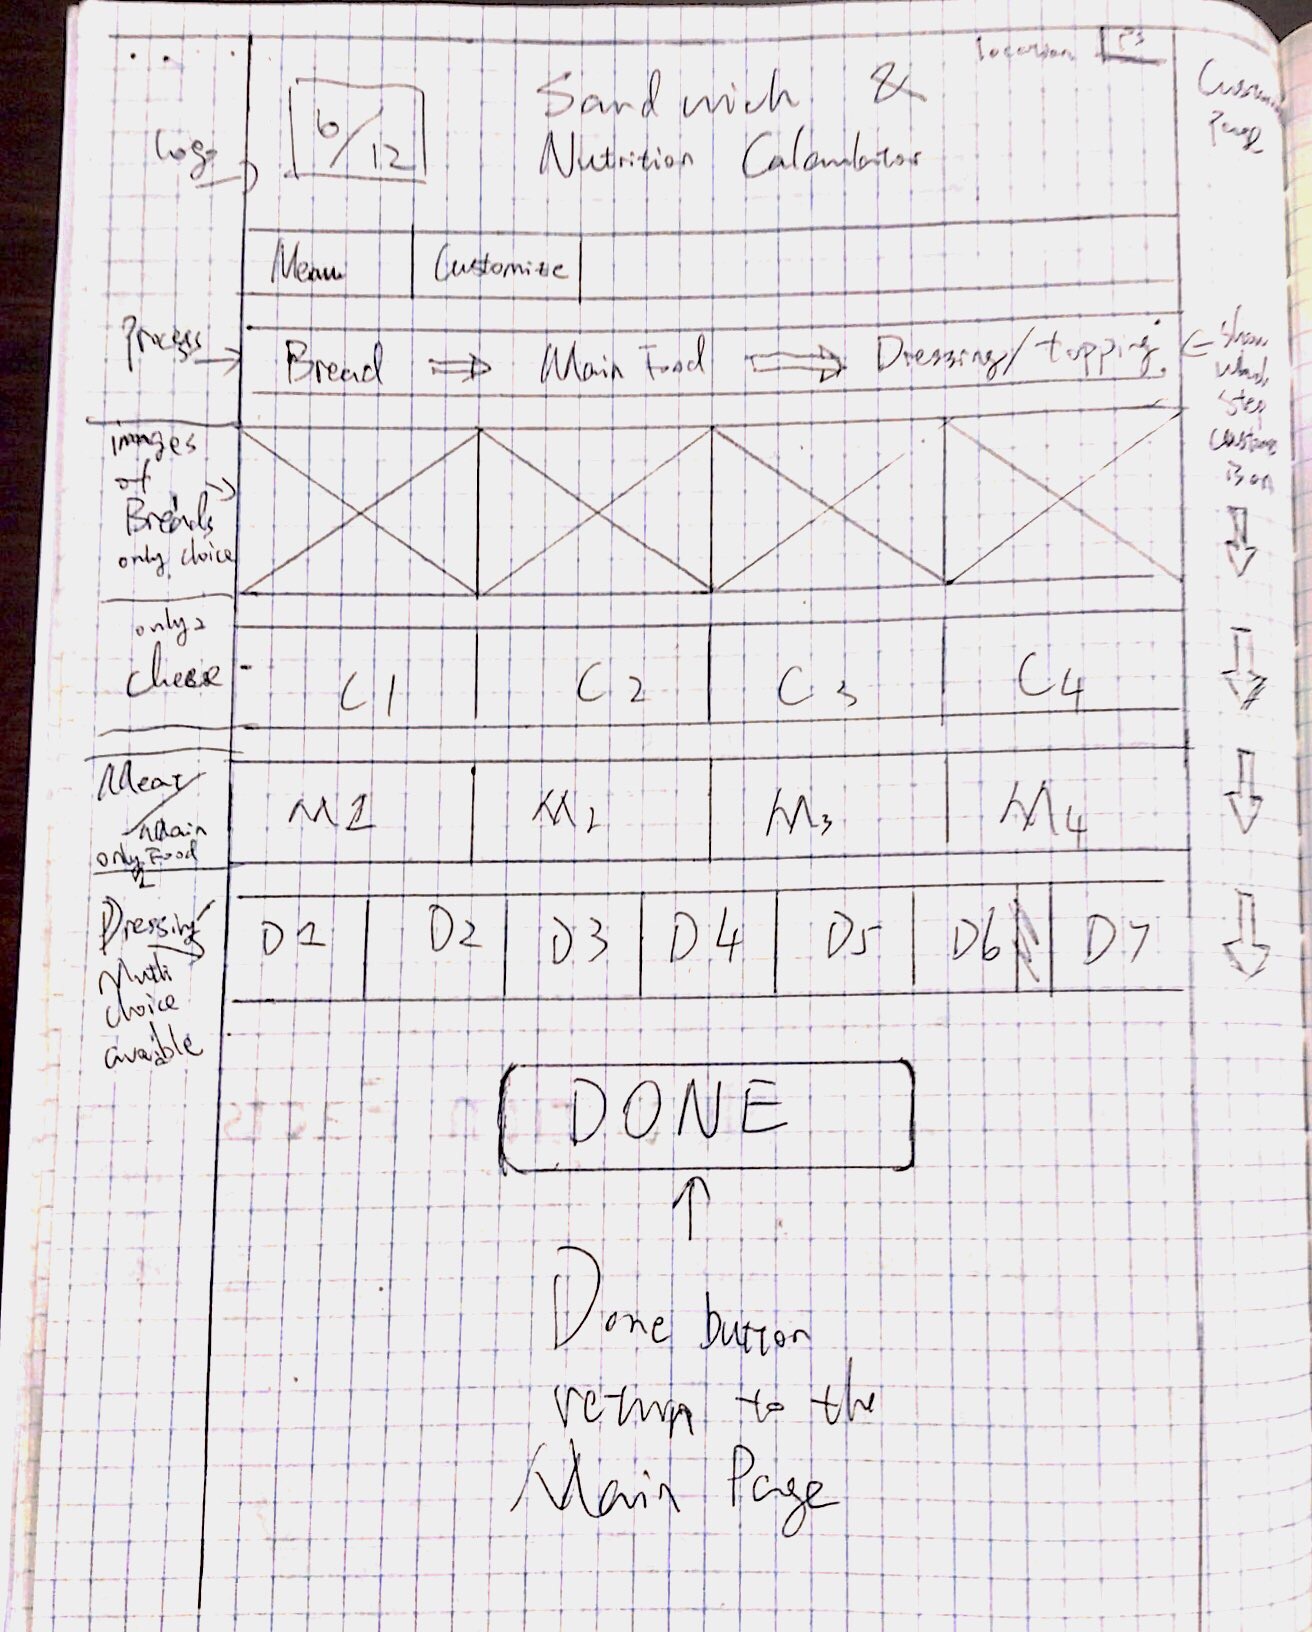 location
Customize
Page
Logo
6/12
Sandwich &
Nutrition Calambitor
Menu
Customize
Process
Bread ⇒ Main Food ⇒ Dressing/topping
Show
which
step
custome
is on
images
of
Breads
only choice
only 2
Cheese
C1
C2
C3
C4
Meat/
Main
Food
only
2
M1
M2
M3
M4
Dressing
Multi
choice
avaible
D1
D2
D3
D4
D5
D6
D7
DONE
Done button
return to the
Main Page